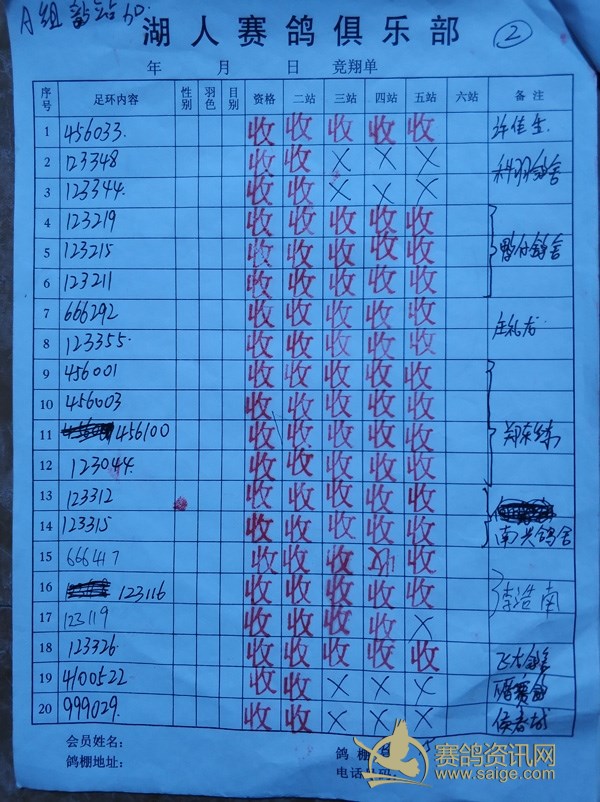 A组
②
湖人赛鸽俱乐部
年 月 日 竞翔单
序号 足环内容 性别 羽色 目别 资格 二站 三站 四站 五站 六站 备注
1 456033. 收 收 收 收 收
2 123348 收 收 × × ×
3 123344. 收 收 × × ×
4 123219 收 收 收 收 收
5 123215 收 收 收 收 收
6 123211 收 收 收 收 收
7 666292 收 收 收 收 收
8 123355. 收 收 收 收 收
9 456001 收 收 收 收 收
10 456003 收 收 收 收 收
11 456100 收 收 收 收 收
12 123044. 收 收 收 收 收
13 123312 收 收 收 收 收
14 123315 收 收 收 收 收 南兴鸽舍
15 666417 收 收 收 收 收
16 123116 收 收 收 收 收 李浩南
17 123119 收 收 收 收 ×
18 123326 收 收 收 收 收
19 4100522 收 收 × × ×
20 999029. 收 收 × × ×
会员姓名:
鸽棚地址: 鸽棚
电话号码:
赛鸽资讯网
www.saige.com